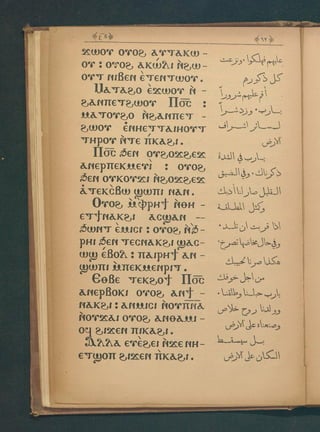 ≼٤٨≽ ≼٦٢≽
ϫⲱⲟⲩ ⲟⲩⲟϩ ⲁⲩⲧⲁⲕⲱ -
ⲟⲩ : ⲟⲩⲟϩ ⲁⲕⲱ̀ⲗⲓ ⲛ̀ϩⲱ -
ⲟⲩⲧ ⲛⲓⲃⲉⲛ ⲉ̀ⲧⲉⲛⲧⲱⲟⲩ .
Ⲙⲁⲧⲁϩⲟ ⲉ̀ϫⲱⲟⲩ ⲛ̀ -
ϩⲁⲛⲡⲉⲧϩⲱⲟⲩ Ⲡ̅ϭ̅ⲥ̅ :
ⲙⲁⲧⲟⲩϩⲟ ⲛ̀ϩⲁⲛⲡⲉⲧ -
ϩⲱⲟⲩ ⲉ̀ⲛⲏⲉⲧⲧⲁⲓⲏⲟⲩⲧ
ⲧⲏⲣⲟⲩ ⲛ̀ⲧⲉ ⲡ̀ⲕⲁϩⲓ .
Ⲡ̅ϭ̅ⲥ̅ ϧⲉⲛ ⲟⲩϩⲟϫϩⲉϫ
ⲁⲛⲉⲣⲡⲉⲕⲙⲉⲩⲓ̀ : ⲟⲩⲟϩ
ϧⲉⲛ ⲟⲩⲕⲟⲩϫⲓ ⲛ̀ϩⲟϫϩⲉϫ
ⲁ̀ⲧⲉⲕⲥ̀ⲃⲱ ϣⲱⲡⲓ ⲛⲁⲛ .
Ⲟⲩⲟϩ ⲙ̀ⲫⲣⲏϯ ⲛ̀ⲑⲏ -
ⲉⲧϯⲛⲁⲕϩⲓ ⲁⲥϣⲁⲛ -
ϧⲱⲛⲧ ⲉ̀ⲙⲓⲥⲓ : ⲟⲩⲟϩ ⲛ̀ϩ̀ -
ⲣⲏⲓ ϧⲉⲛ ⲧⲉⲥⲛⲁⲕϩⲓ ϣⲁⲥ -
ⲱϣ ⲉ̀ⲃⲟⲗ : ⲡⲁⲓⲣⲏϯ ⲁⲛ -
ϣⲱⲡⲓ ⲙ̀ⲡⲉⲕⲙⲉⲛⲣⲓⲧ .
Ⲉⲑⲃⲉ ⲧⲉⲕϩⲟϯ Ⲡ̅ϭ̅ⲥ̅
ⲁⲛⲉⲣⲃⲟⲕⲓ ⲟⲩⲟϩ ⲁⲛϯ -
ⲛⲁⲕϩⲓ : ⲁⲛⲙⲓⲥⲓ ⲛ̀ⲟⲩⲡ̅ⲛ̅ⲁ̅
ⲛ̀ⲟⲩϫⲁⲓ ⲟⲩⲟϩ ⲁⲛⲑⲁⲙⲓ -
ⲟϥ ϩⲓϫⲉⲛ ⲡⲓⲕⲁϩⲓ .
Ⲁⲗⲗⲁ ⲉⲩⲉ̀ϩⲉⲓ ⲛ̀ϫⲉⲛⲏ -
ⲉⲧϣⲟⲡ ϩⲓϫⲉⲛ ⲡ̀ⲕⲁϩⲓ .
عليهم فهلكوا ٠ ونزعت
كل ذكورهم
أقم عليهم شروراً
يارب ٠ وزد شــراً
لســائر اشــراف
الأرض
يارب في الشدة
ذكرناك ٠ وفي الضيق
القليل صار لنا أدبك
وكمثل المطلقــة
اذا قربت ان تلــد ٠
وفي حال مخاضها تصرخ ٠
هكذا صرنا لحبيبك
من اجل خوفك
يارب حبلنــا وطلقنا ٠
وولدنا روح خلاص
وصنعناه على الأرض
بــل سيسقــط
السكان على الأرض